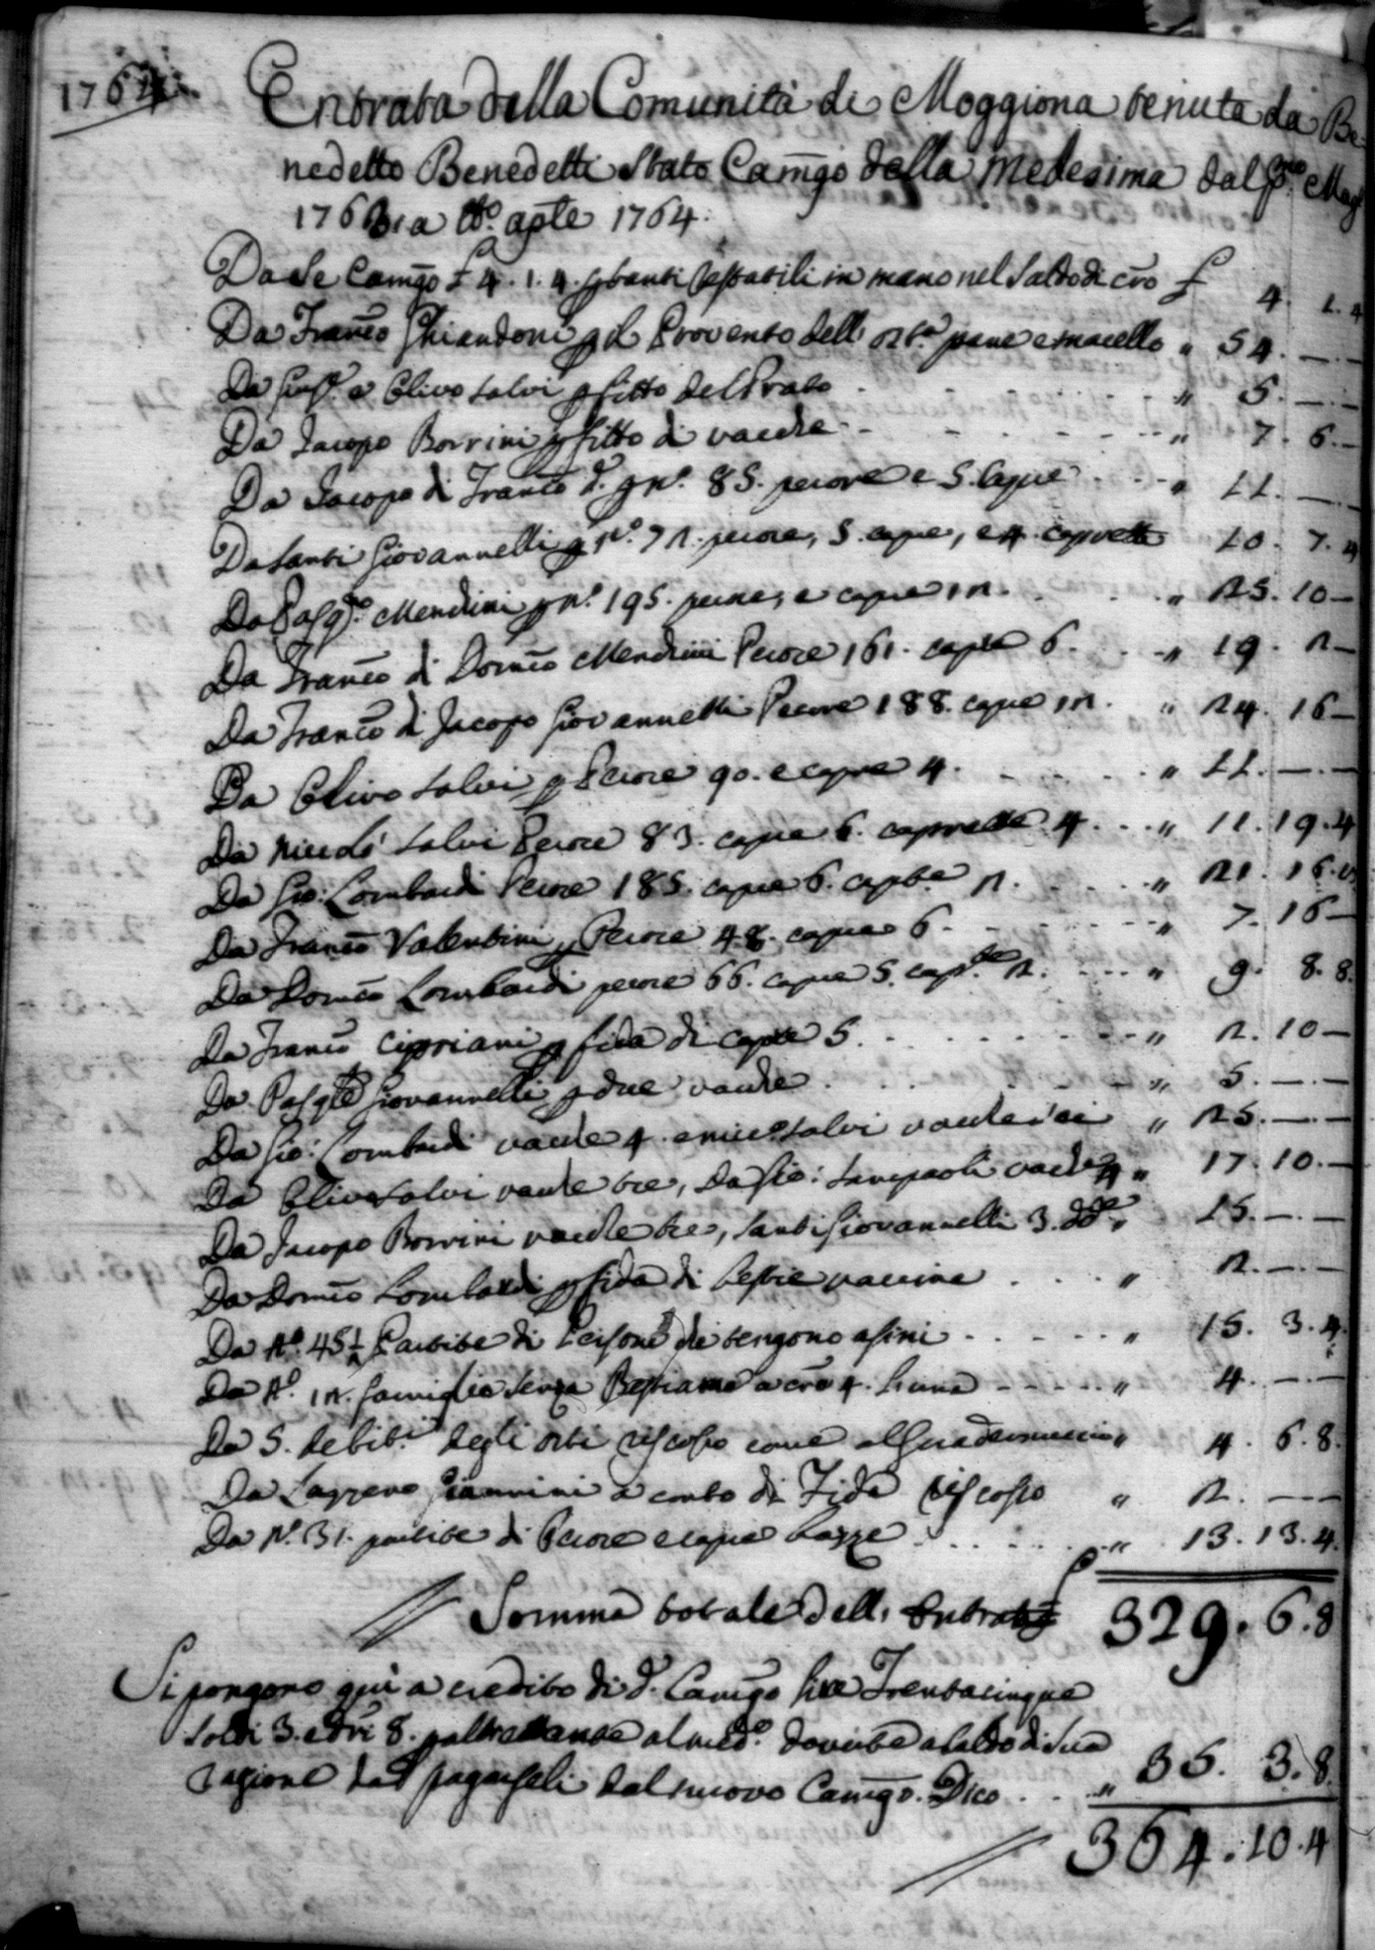 1764
Entrata della Comunità di Moggiona tenuta da Be-
nedetto Benedetti Stato Camgo della medesima dal p.mo Mag.
1763 a tto. aple 1764.
Da Se Camgo £ 4. 1. 4. ptanti restatili in mano nel Saldo di cro £ 4. 1. 4
Da Franco Ghiandoni pel Provento dell' ost.a pane e macello " 54. —. —
Da Giusp.e e Olivo Salvi p fitto del Prato " 5. —. —
Da Jacopo Borrini p fitto di vacche " 7. 6. —
Da Jacopo di Franco d. p n.o 85. pecore e 5. capre " 11. —. —
Da Santi Giovannelli p n.o 72. pecore, 5. capre, e 4. caprette 10. 7. 4
Da Pasq.e Mendini p n.o 195. pecore, e capre 12. " 25. 10 —
Da Franco di Domco Mendini Pecore 161. capre 6. " 19. 2 —
Da Franco di Jacopo Giovannelli Pecore 188. capre 12. " 24. 16 —
Da Olivo Salvi p Pecore 90. e capre 4. " 11. —. —
Da Niccolò Salvi Pecore 83. capre 6. caprette 4. " 11. 19. 4
Da Gio: Lombardi Pecore 185. capre 6. capte 2. " 21. 16.
Da Franco Valentini p Pecore 48. capre 6. " 7. 16 —
Da Domco Lombardi pecore 66. capre 5. cap.te 2. " 9. 8. 8.
Da Franco Cipriani p fida di capre 5. " 2. 10 —
Da Pasqle Giovannelli p due vacche " 5. —. —
Da Gio: Lombardi vacche 4. e Nicc.o Salvi vacche sei " 25. —. —
Da Olivo Salvi vacche tre, Da Gio: Sanepaoli vacche 4 " 17. 10. —
Da Jacopo Borrini vacche tre, Santi Giovannelli 3. dde " 15. —. —
Da Domco Lombardi p fida di bestie vaccine " 2. —. —
Da N.o 45½ Partite di Persone che tengono asini " 15. 3. 4.
Da N.o 12. famiglie senza Bestiame a cro 4. l'una " 4. —. —
Da 5. debit.i degli orti riscosso come al Quadernuccio " 4. 6. 8.
Da Lazzero Giannini a conto di Fida riscosso " 2. —. —
Da N.o 31. partite di Pecore e capre bazze " 13. 13. 4.
Somma totale dell' Entrata £ 329. 6. 8
Si pongono qui a credito di d.o Camgo lire Trentacinque
Soldi 3. e dri 8. paltrettante al med.o dovute a saldo di sua
ragione da pagarseli dal nuovo Camgo. Dico " 35. 3. 8.
364. 10. 4